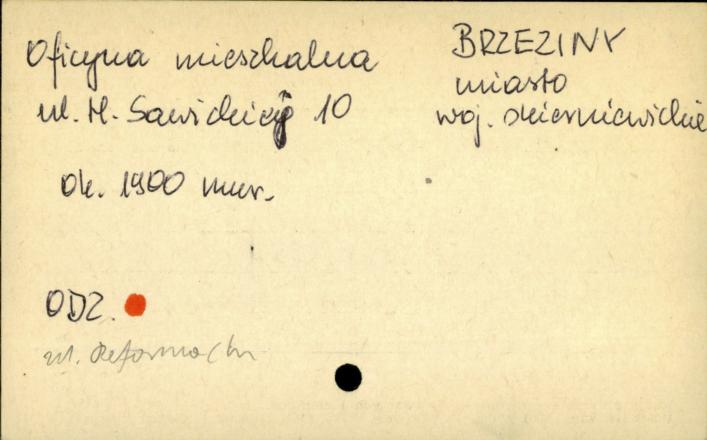 Oficyna mieszkalna
ul. H. Sawickiej 10
ok. 1900 mur.
BRZEZINY
miasto
woj. skierniewickie
ODZ.
ul. Reformacka